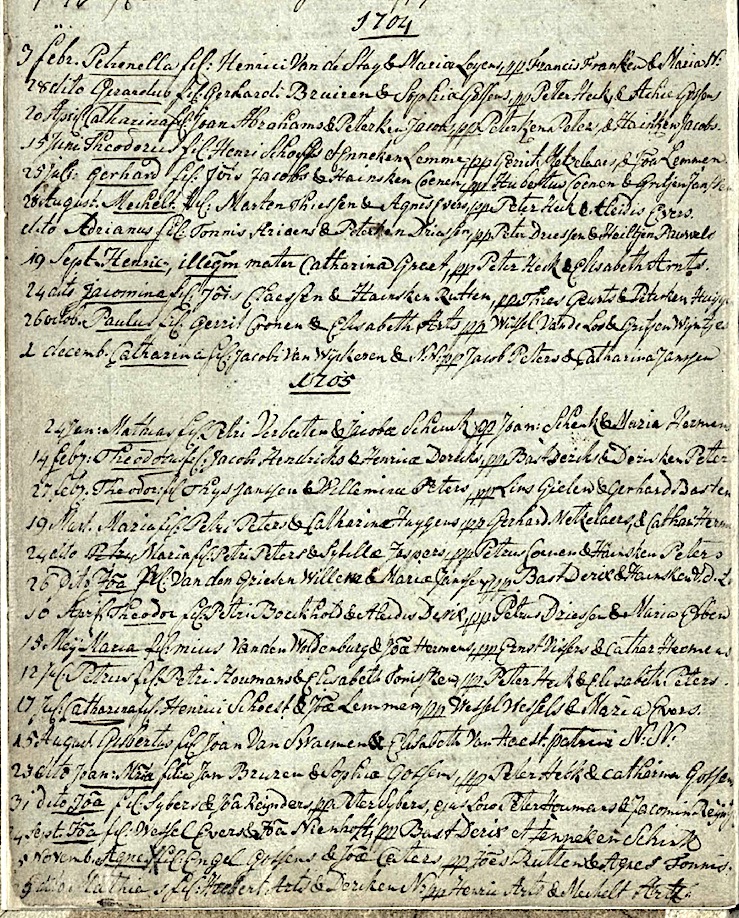 1704
3 febr. Petronella fil: Henrici Van de Stay & Maria Loyens, pp Francis Franken & Maria N:
28 dito Girardus fil Gerhardi Bruiren & Sophia Gossens, pp Peter Heck & Gossens
20 April Catharina fil Joan Abrahams & Peterken Jacobs, pp Peterken Peters, & Hainsken Jacobs.
15 Juni Theodorus fil: Henri Schoest & Enneken Lemme, pp Gerrit Metzelaers, & Joa Lemmen
25 Juli: Gerhard fil Jois Jacobs & Hainsken Coenen, pp Hubertus Coenen & Jansse
28 August. Mechelt fil: Marten Thiessen & Agnis Evers, pp Peter Heck & Aleidis Evers.
dito Adrianus fil: Tonnis Ariaens & Peterken Driessen, pp Peter Driessen & Heiltjen Pauwels
19 Sept. Henric, illegm mater Catharina Greef, pp Peter Heck & Elisabeth Arnts.
24 dito Jacomina fil: Jois Claessen & Hainsken Rutten, pp Thies Geurts & Peterken
26 octob. Paulus fil: Gerrit Cronen & Elisabeth Arts pp Wessel Van de Loo & Gritjen Wijntjes
1 decemb. Catharina fil: Jacobi Van Wyckeren & N:N: pp Jacob Peters & Catharina Janssen
1705
24 Jan: Mathias fil Petri Verbeeten & Jacobæ Schenck, pp Joan: Schenk & Maria Hermens
14 feb: Theodora fil: Jacobi Hendricks & Henricæ Dericks, pp Bast Derick & Dericksken Peter
27 feb: Theodor fil Thys Janssen & Willemina Peters, pp Lins Gielen & Gerhards Basten
19 Mart. Maria fil Petri Peters & Catharina Huygens, pp Gerhard Metzelaers, & Cathar Herm
24 dito Maria fil: Petri Peters & Sibillæ Jaspers, pp Petrus Coenen & Hainsken Peters
26 dito Joa fil: Van den Griesen Willem & Mariæ Janssen, pp Bast Derix & Hainsken V. d. L
10 April Theodor fil Petri Bockhold & Aleidis Derix, pp Petrus Driessen & Maria Ebben
15 Meij Maria Van den Woldenburg & Joæ Hermens, pp Ernst Vissers & Cathar Hermens
12 Jul: Petrus fil Petri Houmans & Elisabeth Tonissen, pp Peter Heck & Elisabeth Peters.
17 Jul: Catharina fil: Henrici Schoest & Joæ Lemmen, pp Wessel Wessels & Maria Evers.
15 August Gisbertus fil Joan Van Swaemen & Elisabeth Van Haest. patrini N: N:
23 dito Joan: Nĩcla filia Jan Bruren & Sophia Gossens, pp Peter Heck & Catharina Gossens
31 dito Joa fil: Sybers & Joa Reynders, pp Peter Sybers, ejus loco Peter Houmans & Jacomin Reynd
Sept. Joa fil: Wessel Evers & Joa Nienhoff, pp Bast Derix et Jenneken Schink
5 Novemb. Agnes fil Engel Gossens & Joæ Caters, pp Joes Rutten & Agnes Tonnis.
5 dito Mathias fil: Herbert Arts & Dercken N: pp Henric Arts & Mechelt Arts